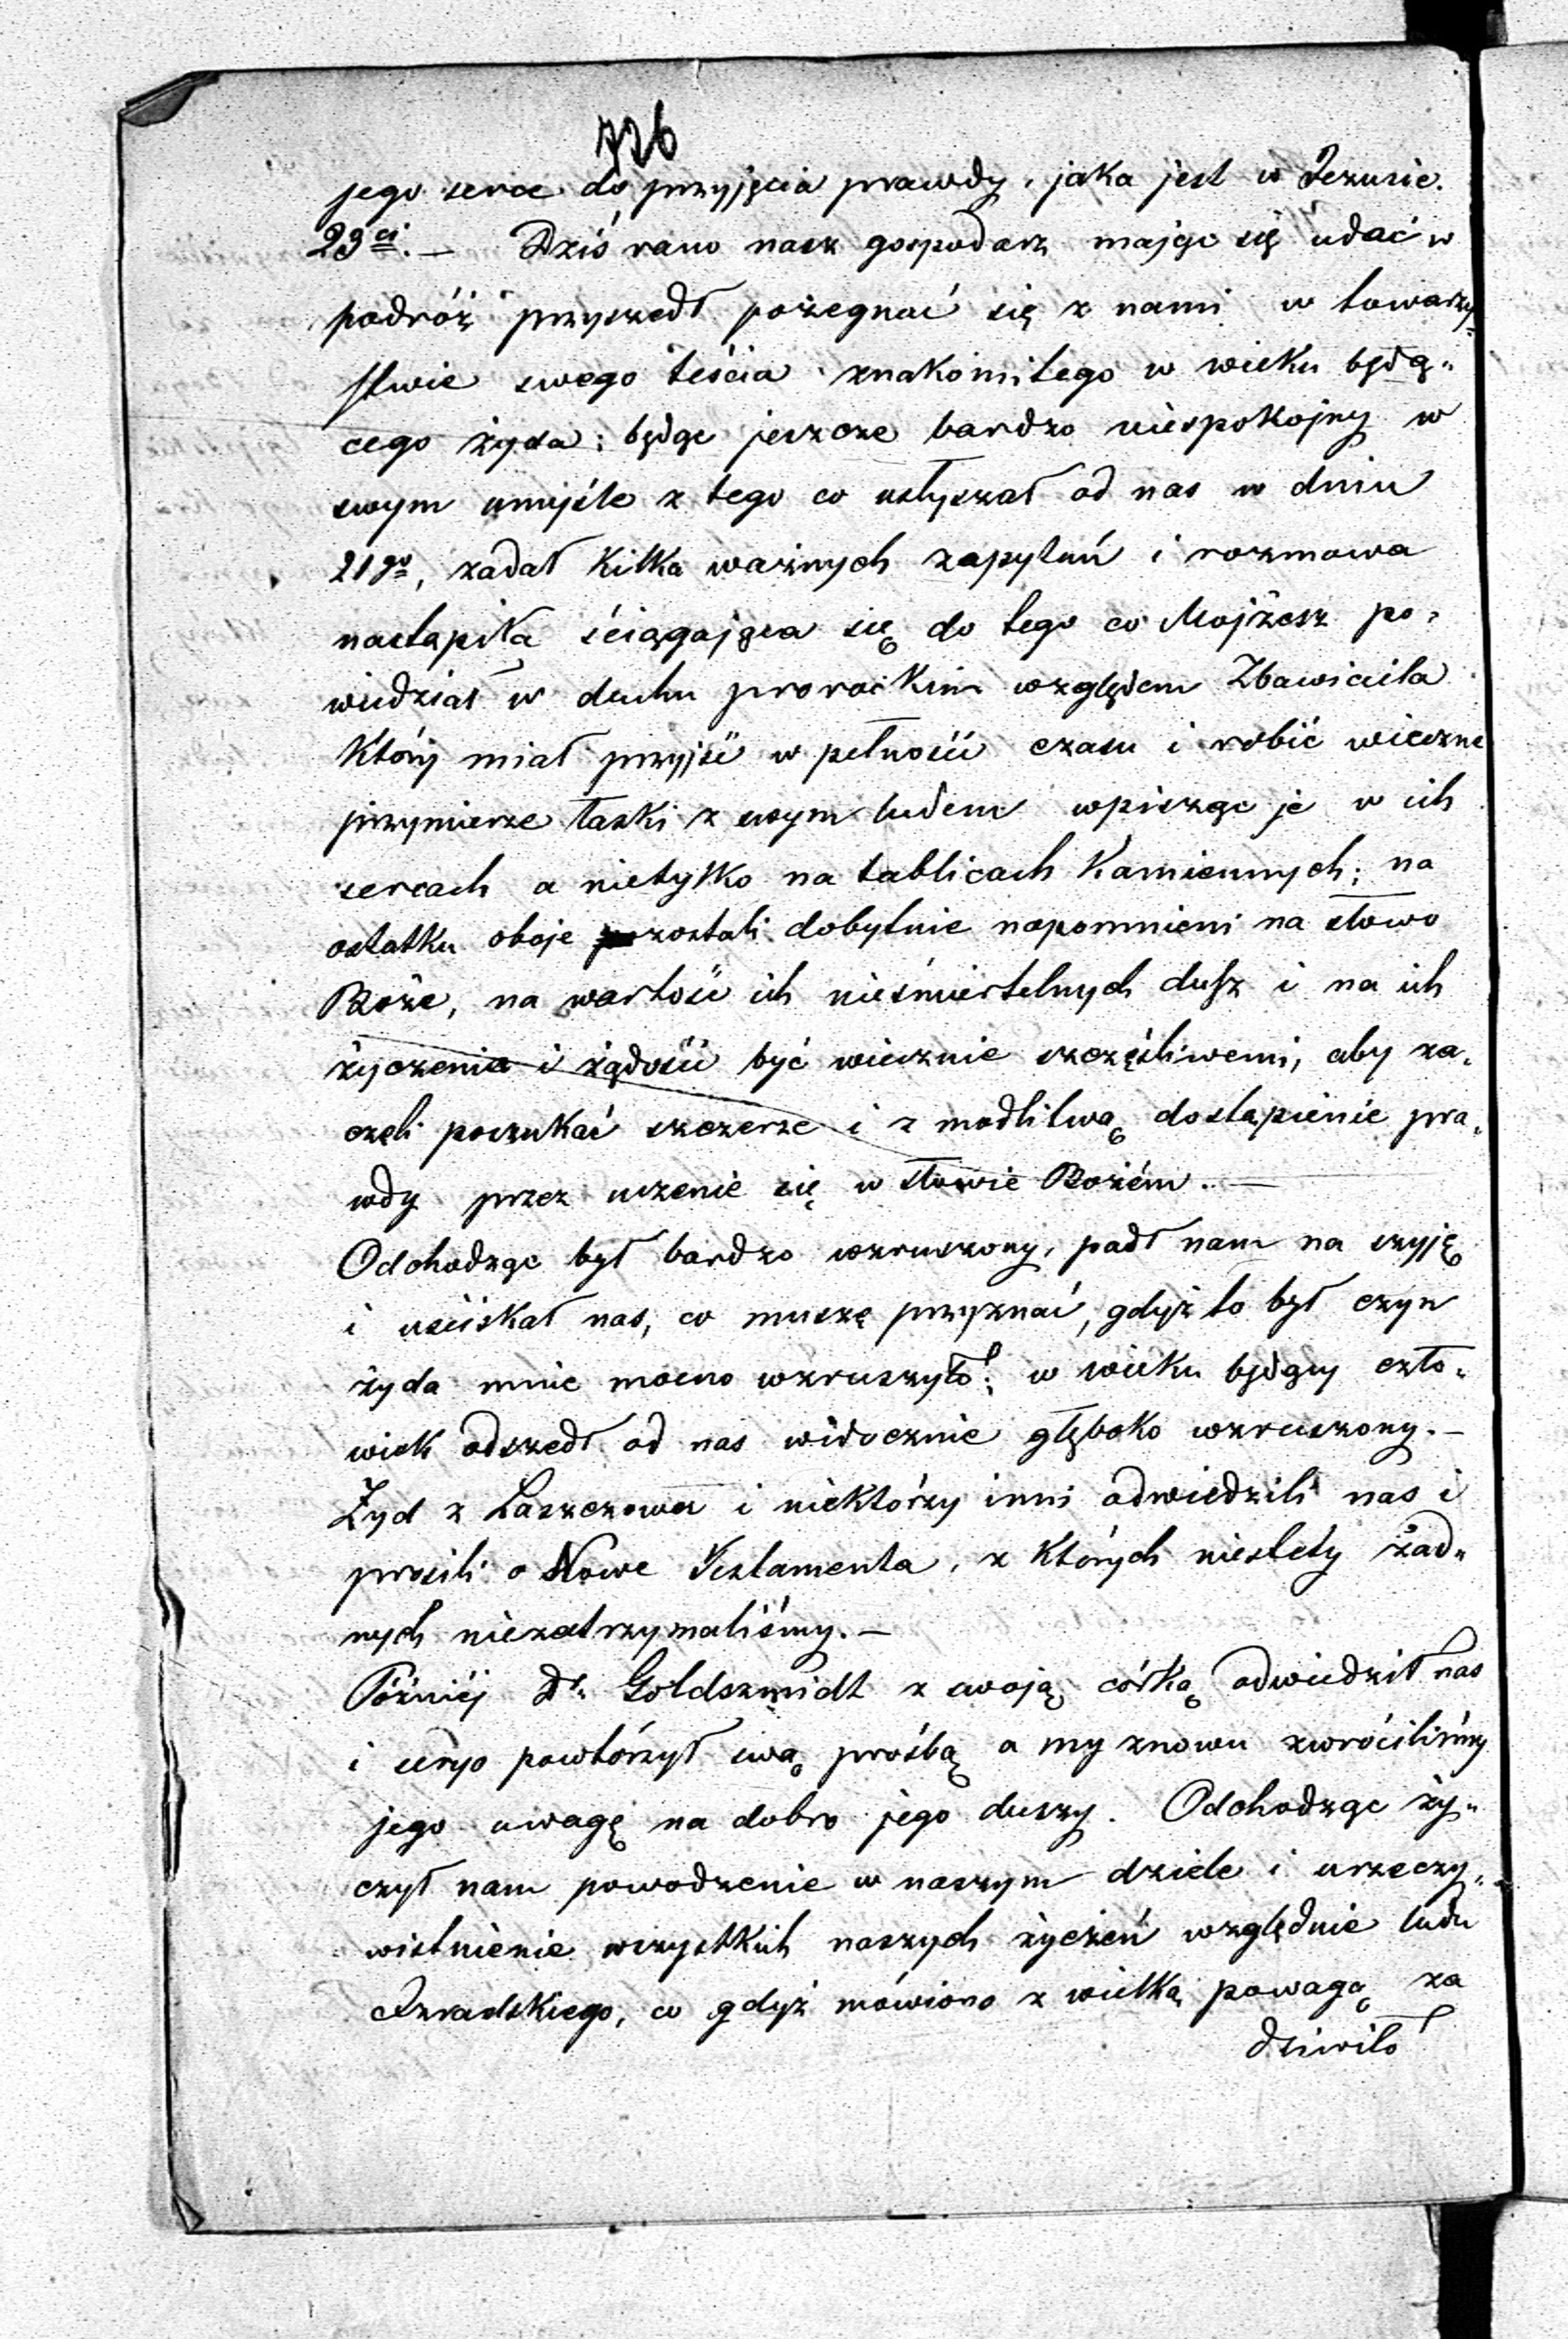 726
jego serce do przyjęcia prawdy, jaka jest w Jezusie.
23ci. — Dziś rano nasz gospodarz mając się udać w
podróż przyszedł pożegnać się z nami w towarzy=
stwie swego teścia znakomitego w wieku będą„
cego żyda; będąc jeszcze bardzo niespokojny w
swym umyśle z tego co usłyszał od nas w dniu
21go, zadał kilka ważnych zapytań i rozmowa
nastąpiła ściągająca się do tego co Mojżesz po„
wiedział w duchu prorockim względem Zbawiciela
który miał przyjść w pełności czasu i robić wieczne
przymierze łaski z swym ludem wpisząc je w ich
sercach a nietylko na tablicach kamiennych; na
ostatku oboje zostali dobytnie napomnieni na słowo
Boże, na wartość ich nieśmiertelnych dusz i na ich
życzenia i żądości być wiecznie szczęśliwemi, aby za„
częli poszukać szczerze i z modlitwą dostąpienie pra„
wdy przez uczenie się w słowie Bożém. —
Odchodząc był bardzo wzruszony, padł nam na szyję
i uściskał nas, co muszę przyznać, gdyż to był czyn
żyda mnie mocno wzruszyło; w wieku będący czło„
wiek odszedł od nas widocznie głęboko wzruszony. —
Żyd z Łaszczowa i niektórzy inni odwiedzili nas i
prosili o Nowe Testamenta, z których niestety żad„
nych niezatrzymaliśmy. —
Późniéj Dr. Goldszmidt z swoją córką odwiedził nas
i seryo powtórzył swą prośbą a my znowu zwróciliśmy
jego uwagę na dobro jego duszy. Odchodząc ży„
czył nam powodzenie w naszym dziele i urzeczy„
wistnienie wszystkich naszych życzeń względnie ludu
Izraelskiego, co gdyż mówiono z wielką powagą za
dziwiło